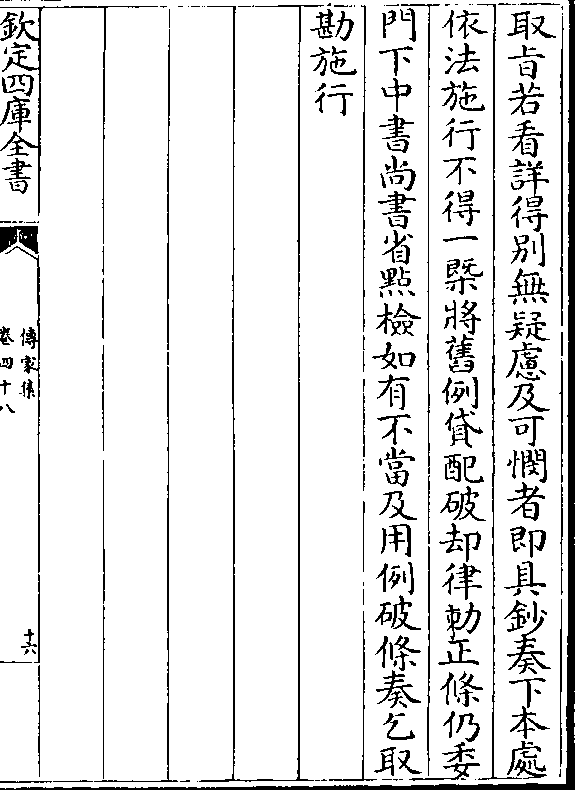 取旨若看詳得別無疑慮及可憫者即具鈔奏下本處
依法施行不得一槩將舊例貸配破却律勅正條仍委
門下中書尚書省點檢如有不當及用例破條奏乞取
勘施行
欽定四庫全書
傳家集
卷四十八
十六